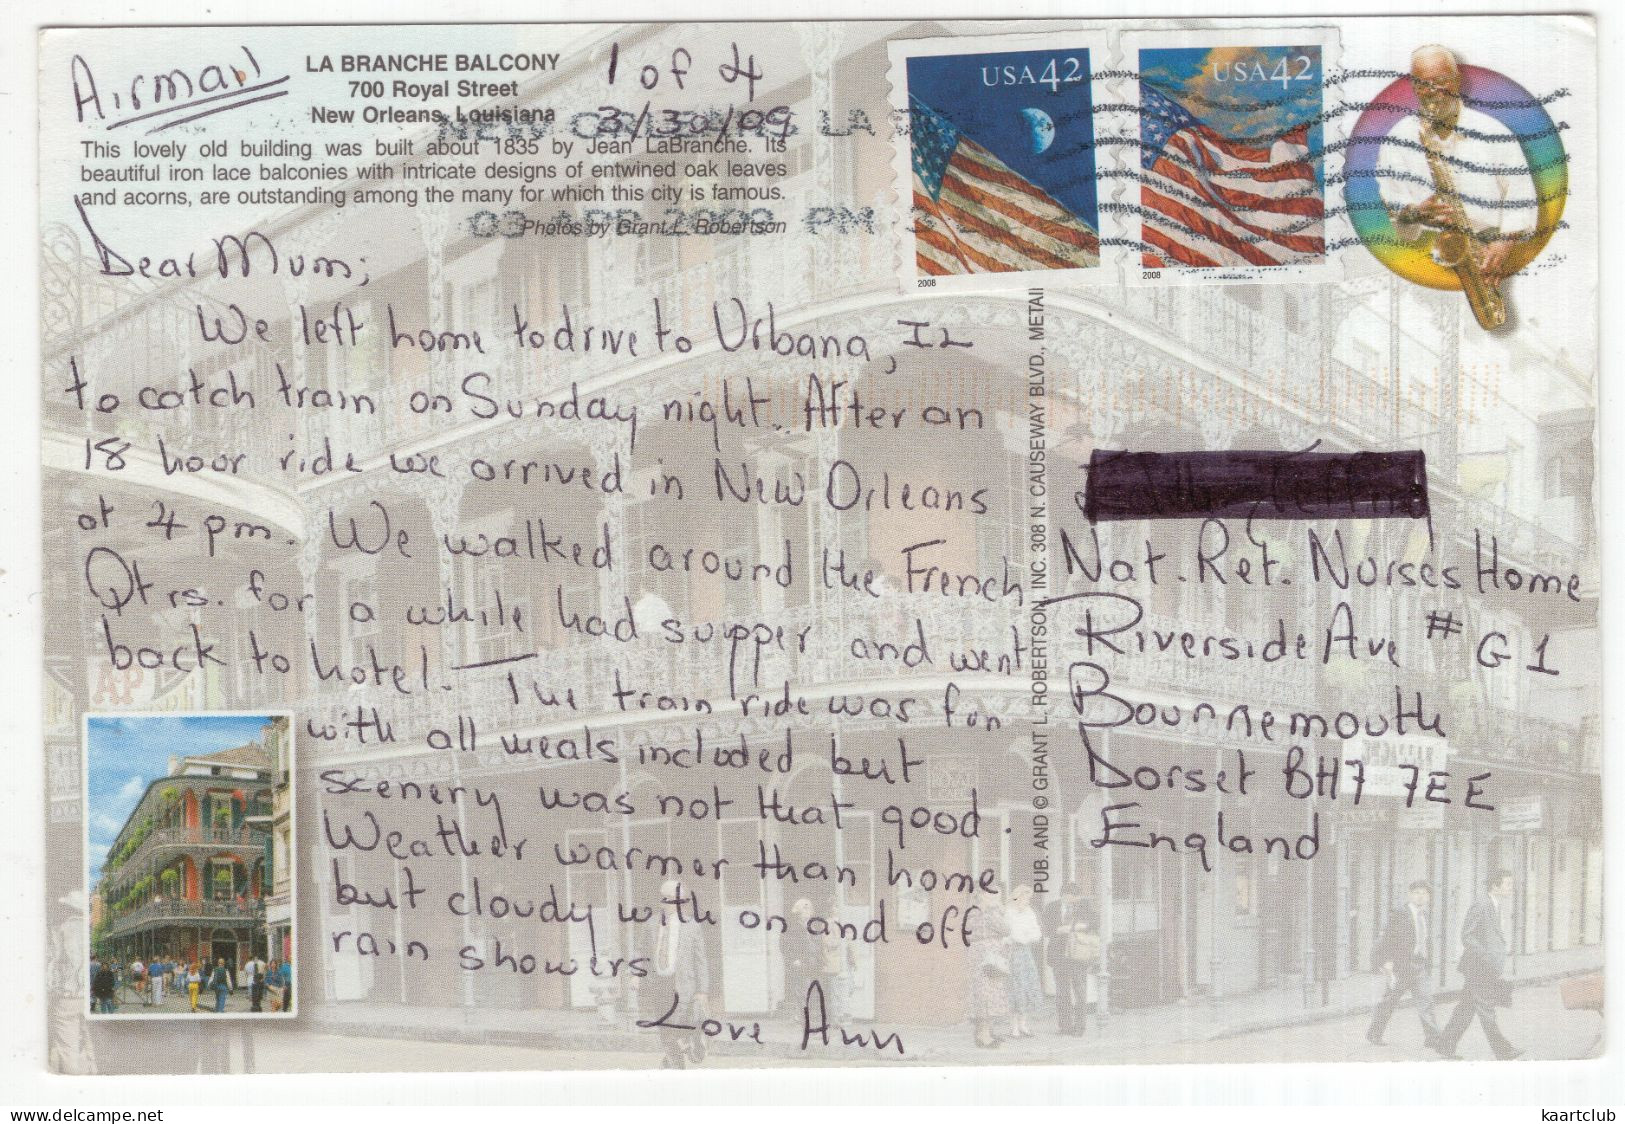 Airmail
LA BRANCHE BALCONY
700 Royal Street
New Orleans, Louisiana
1 of 4
3/30/09
NEW ORLEANS LA
03 APR 2009 PM
This lovely old building was built about 1835 by Jean LaBranche. Its
beautiful iron lace balconies with intricate designs of entwined oak leaves
and acorns, are outstanding among the many for which this city is famous.
Photos by Grant L. Robertson
USA 42
2008
USA 42
2008
Dear Mum;
We left home to drive to Urbana, IL
to catch train on Sunday night. After an
18 hour ride we arrived in New Orleans
at 4 pm. We walked around the French
Qtrs. for a while had supper and went
back to hotel. — The train ride was fun
with all meals included but
scenery was not that good.
Weather warmer than home
but cloudy with on and off
rain showers
Love Ann
PUB. AND © GRANT L. ROBERTSON, INC. 308 N. CAUSEWAY BLVD., METAII
Nat. Ret. Nurses Home
Riverside Ave # G1
Bournemouth
Dorset BH7 7EE
England
A&P
www.delcampe.net
kaartclub